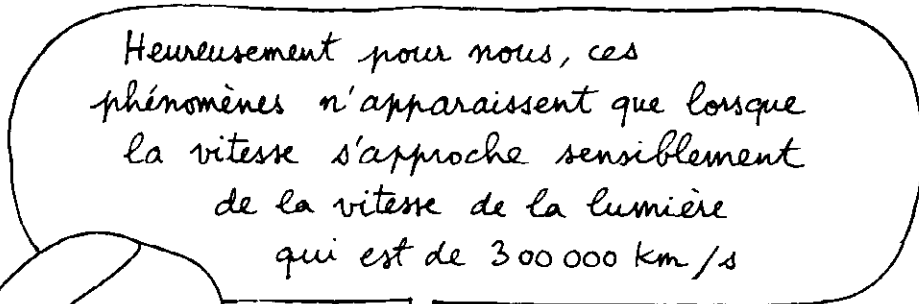 Heureusement pour nous, ces
phénomènes n'apparaissent que lorsque
la vitesse s'approche sensiblement
de la vitesse de la lumière
qui est de 300 000 km/s